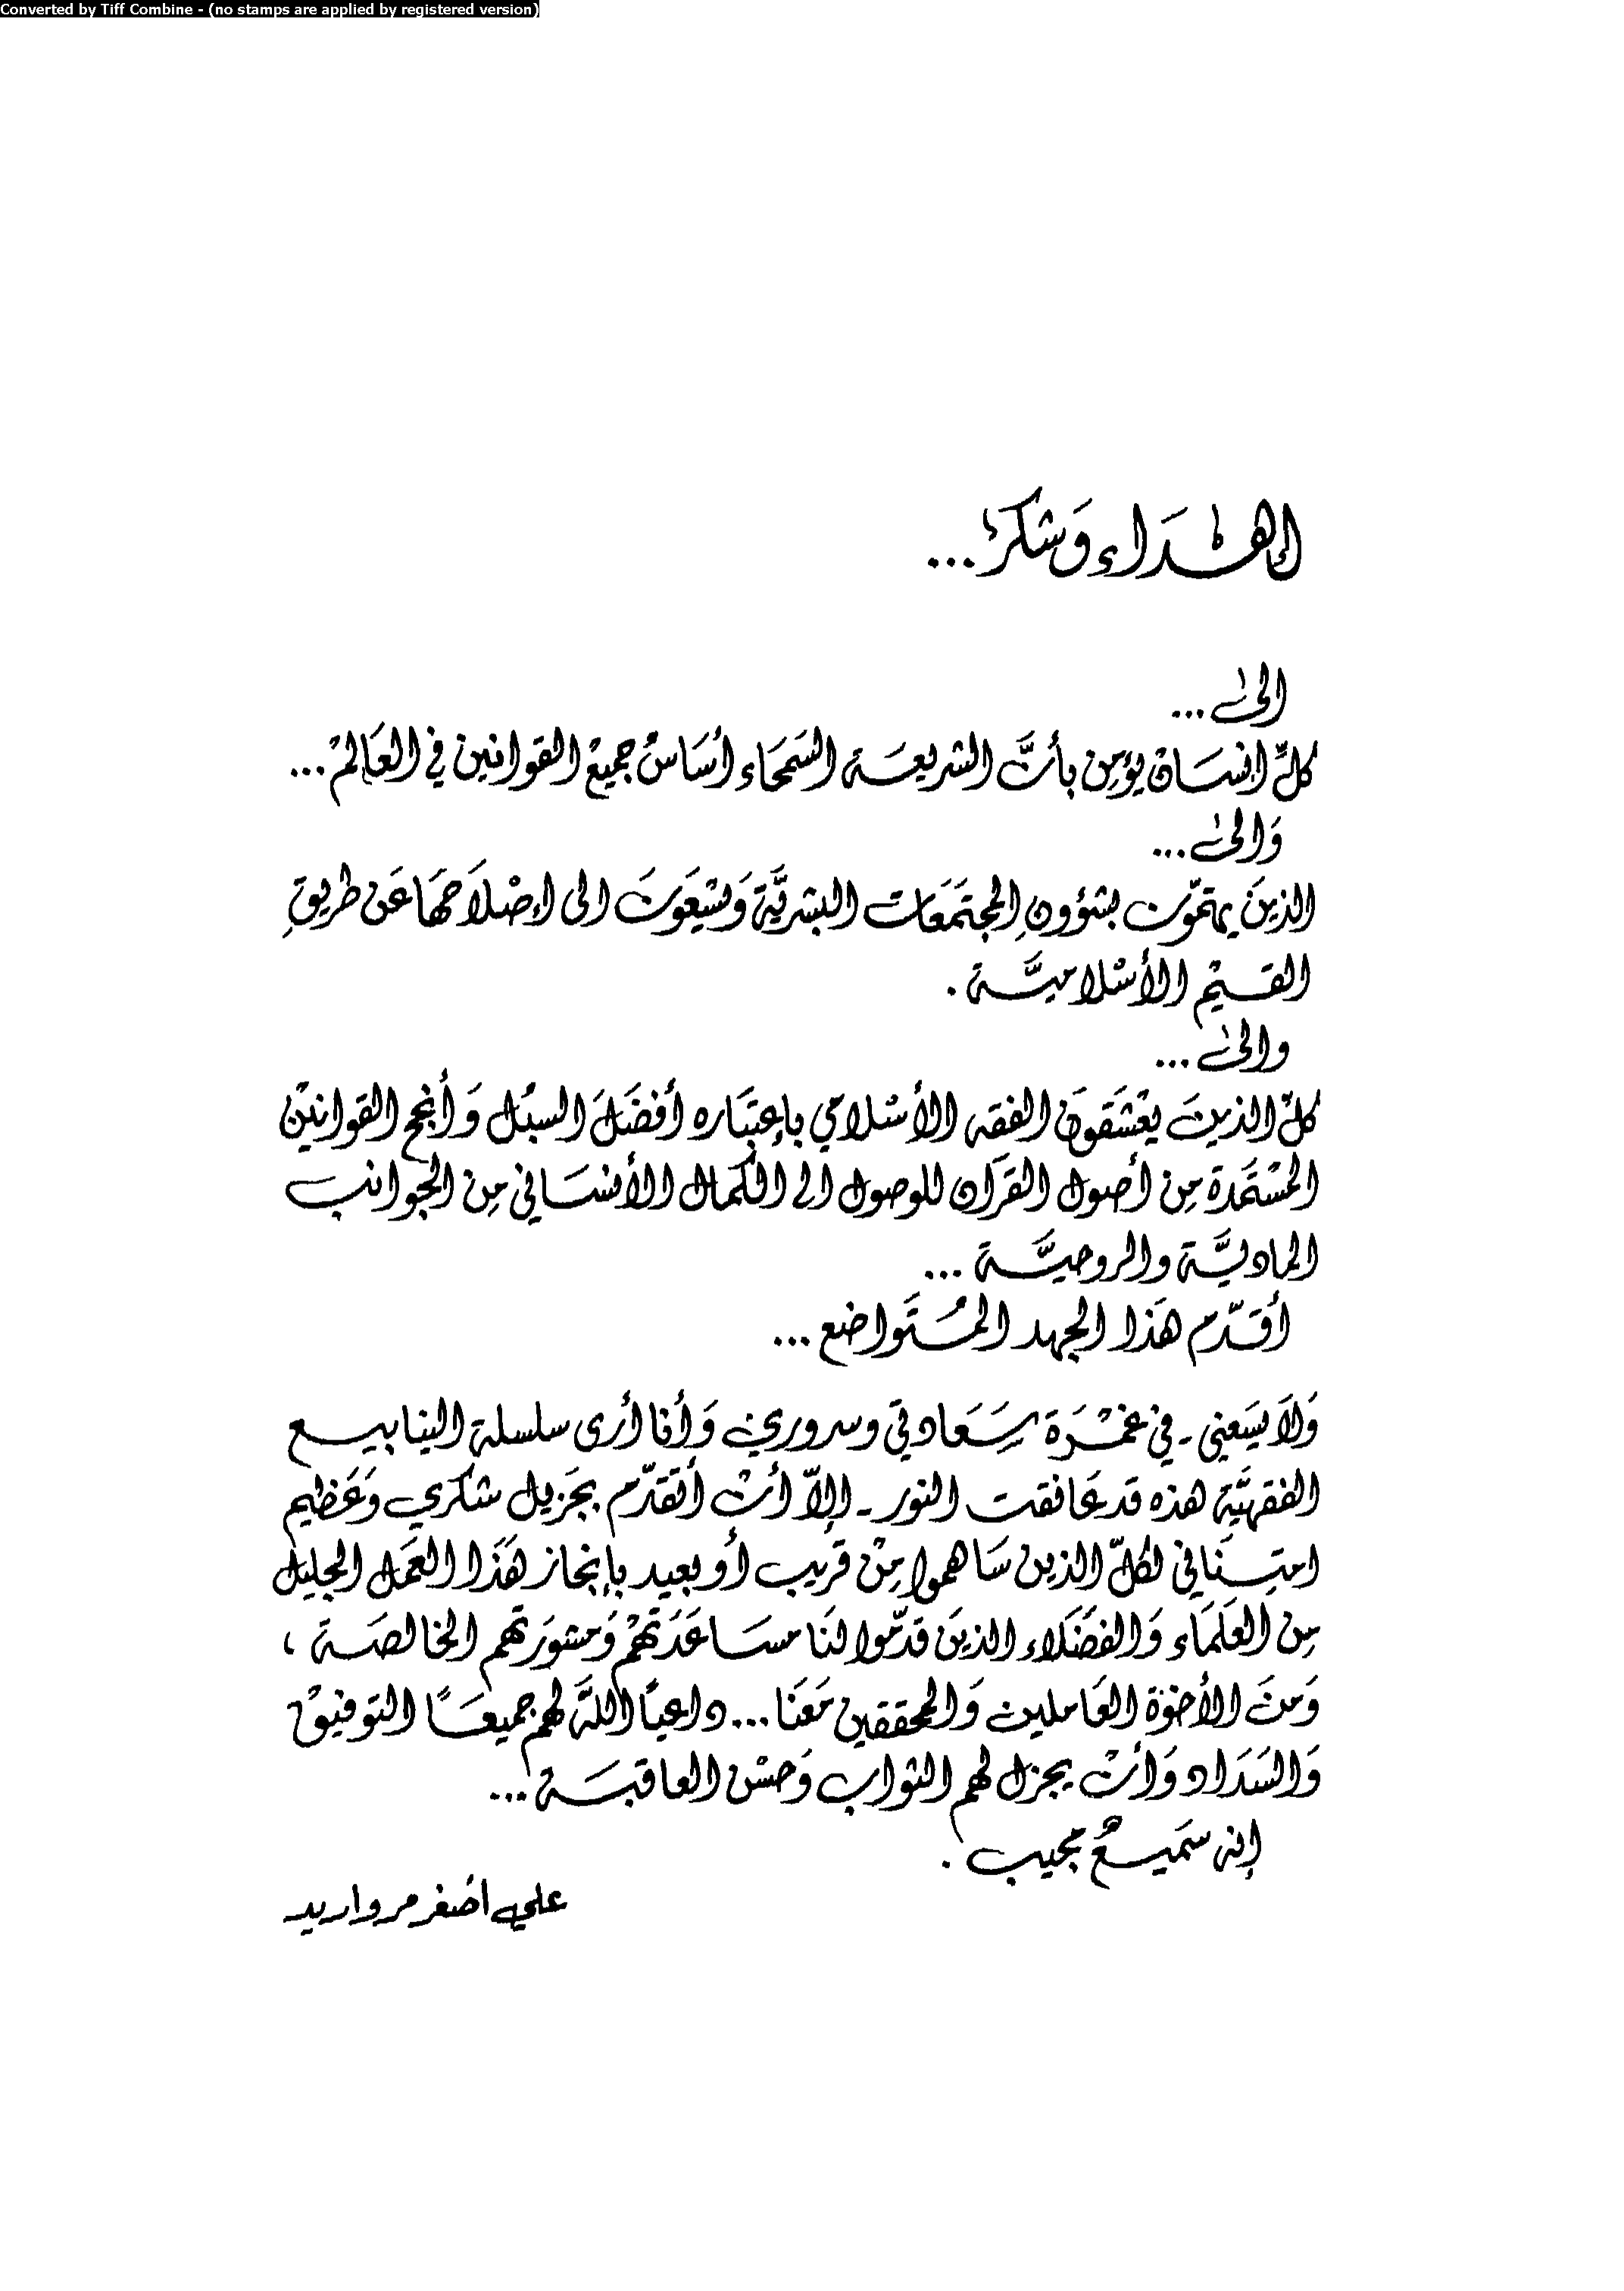 Converted by Tiff Combine - (no stamps are applied by registered version)
إهْدَاء وَشكرٌ...
الىٰ...
كلِّ انسَان يؤمِن بأنَّ الشريعَة السَمحَاء أسَاسُ جميعْ القوانين في العَالمْ...
وَالىٰ...
الذينَ يهتمّون بشؤونِ المجتَمَعَات البشريَّة وَيسْعَونَ الى إصْلاَحهَا عَن طريقِ
القيَمْ الأسْلاميَّة .
والىٰ...
كلّ الذينَ يعْشَقونَ الفقه الأسْلامي بإعتبَاره أفضَلَ السبُل وَأنجح القوانينْ
المسْتَمَدة مِن أصول القرَآن للوصول الى الكمال الأنسَاني مِن الجوانب
الماديَّة والروحيَّة ...
أقدّم هَذا الجهد المُتَواضع ...
وَلاَ يسَعني - في غمْرَة سَعَادتي وسروري وَأنا أرى سلسلة الينابيع
الفقهيَّة هذه قد عَانقت النور - إلاّ أنْ أتقدّم بجَزيل شكري وَعَظيم
امتِنَاني لكلّ الذين سَاهموا مِنْ قريب أو بعيد بإنجاز هَذا العَمَل الجليل
مِن العلَمَاء وَالفضَلاء الذينَ قدّموا لنَا مسَاعَدَتهُمْ وَمشورَتهم الخالصَة ،
وَمنَ الأخوَة العَاملين وَالمحققين مَعَنا... داعيًا اللَّه لهم جميعًا التوفيقْ
وَالسَدَاد وَأنْ يجزل لهم الثواب وَحسْن العاقبَة ...
إنه سَميعٌ مجيب .
علي اصْغر مرواريد